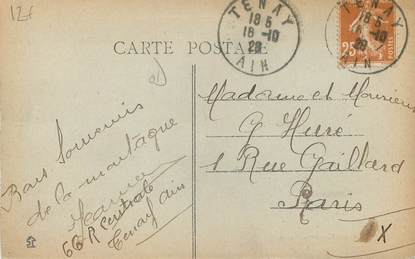 12f
CARTE POSTALE
TENAY
18 5
16-10
28
AIN
25
Bons Souvenirs
de la montagne
Jeanne
66 R Centrale
Tenay Ain
Madame et Monsieur
G Huré
1 Rue Gaillard
Paris
X